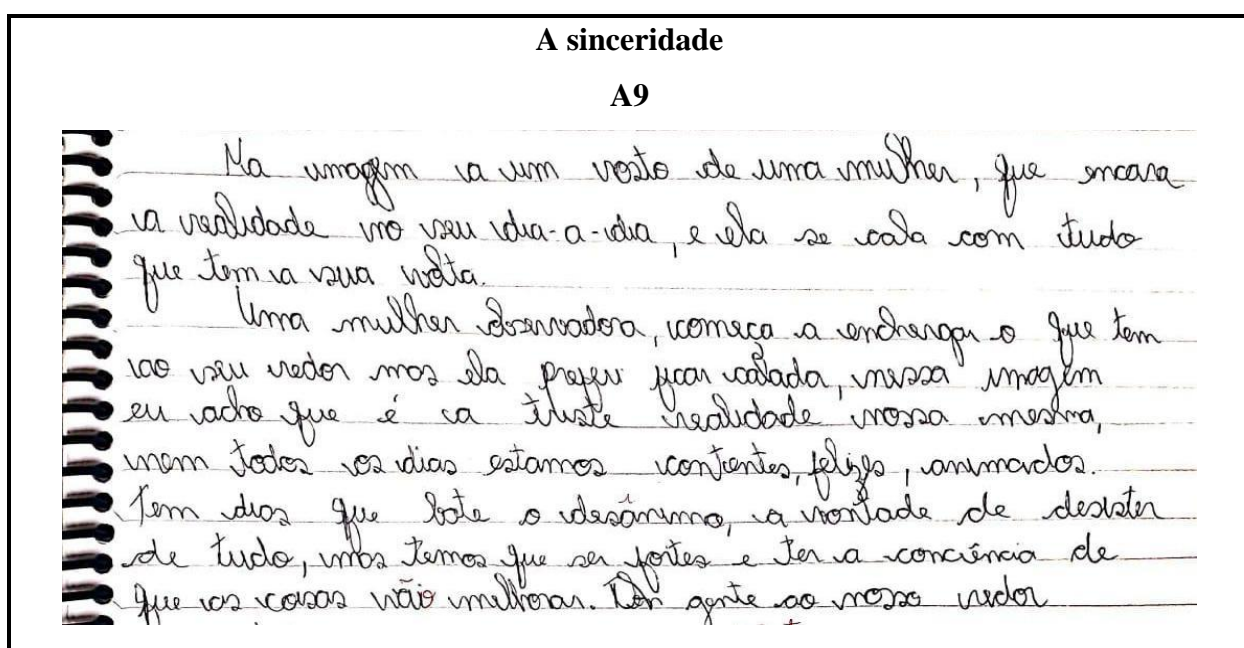 A sinceridade
A9
Na imagem a um rosto de uma mulher, que encara
a realidade no seu dia-a-dia, e ela se cala com tudo
que tem a sua volta.
Uma mulher observadora, começa a enchergar o que tem
ao seu redor mas ela ficar calada, nessa imagem
eu acho que é a triste realidade nossa mesma,
nem todos os dias estamos contentes, felizes, animados.
Tem dias que bate o desânimo, a vontade de desister
de tudo, mas temos que ser fortes e ter a conciência de
que as coisas vão melhorar. gente ao nosso redor